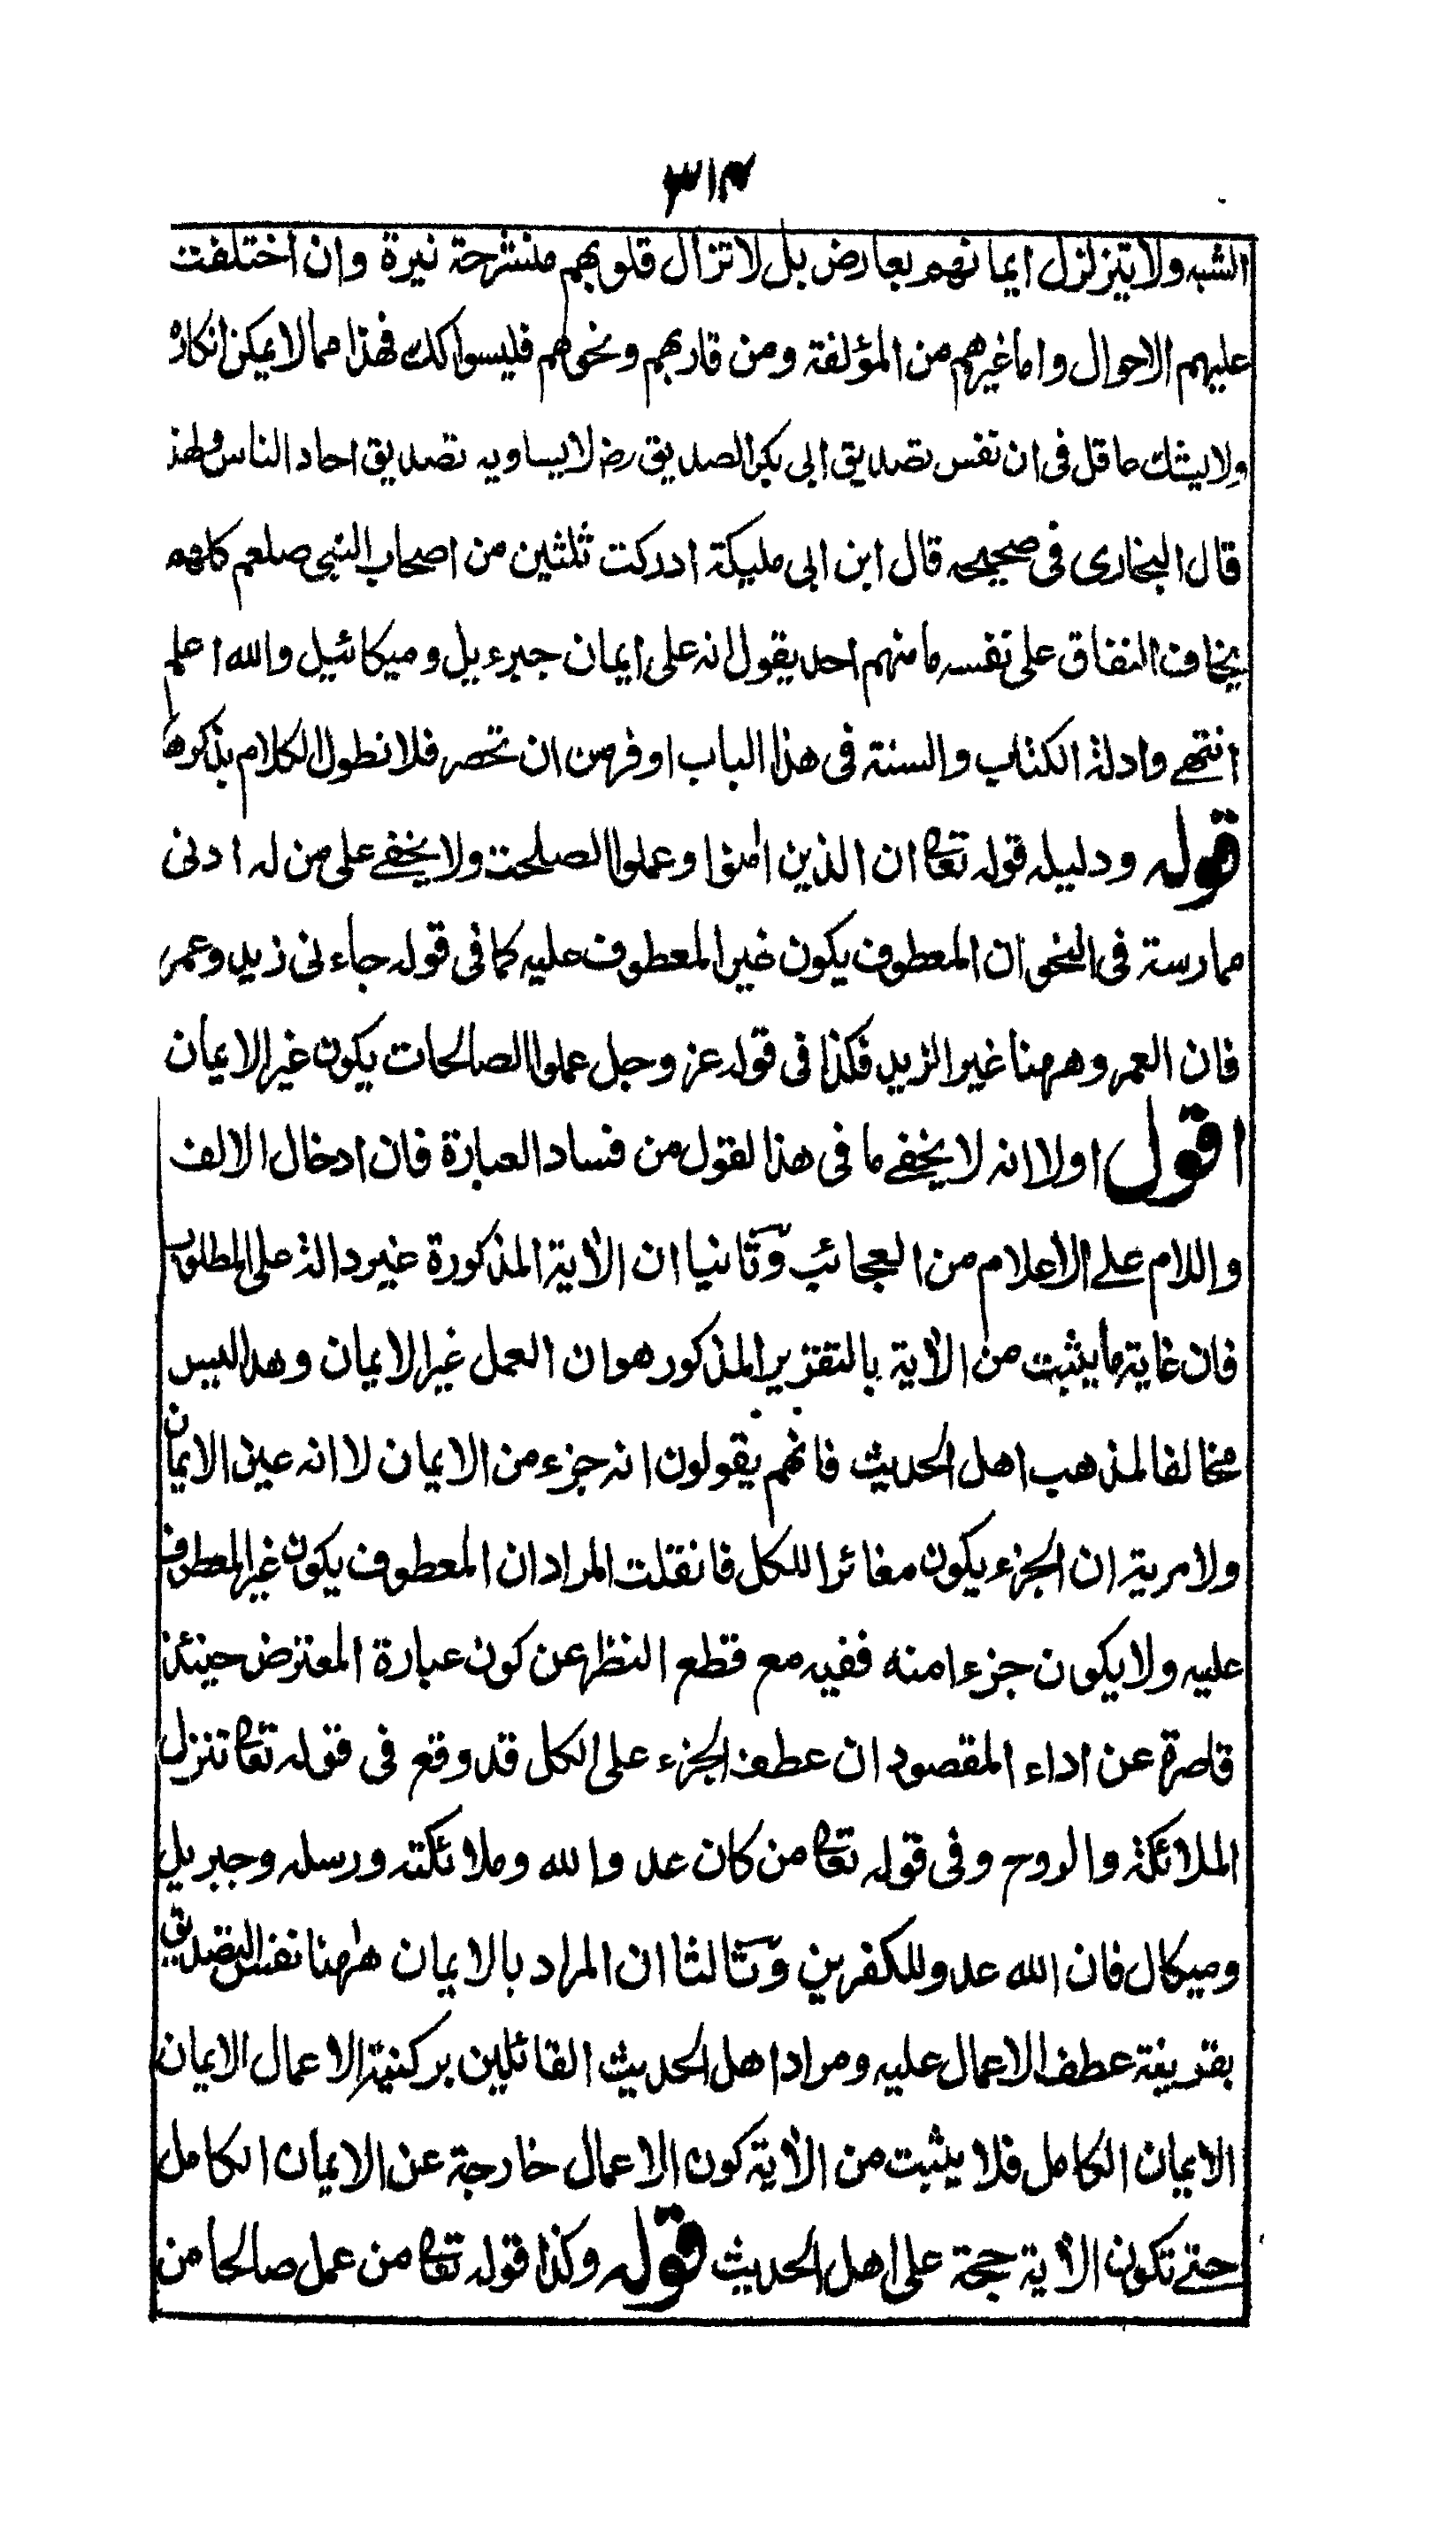 ٣١٤
الشبه ولا يتزلزل ايمانهم بعارض بل لا تزال قلوبهم منشرحة نيرة وان اختلفت
عليهم الاحوال واما غيرهم من المؤلفة ومن قاربهم ونحوهم فليسوا كك فهذا مما لا يمكن انكاره
ولا يشك عاقل فى ان نفس تصديق ابى بكر الصديق رض لا يساويه تصديق احاد الناس ولهذا
قال البخارى فى صحيحه قال ابن ابى مليكة ادركت ثلثين من اصحاب النبى صلعم كلهم
يخاف النفاق على نفسه ما منهم احد يقول انه على ايمان جبرءيل وميكائيل والله اعلم
انتهے وادلة الكتاب والسنة فى هذا الباب اوفر من ان تحصر فلا نطول الكلام بذكرها
قوله ودليله قوله تعالى ان الذين اٰمنوا وعملوا الصلحت ولا يخفے على من له ادنى
ممارسة فى النحو ان المعطوف يكون غير المعطوف عليه كما فى قوله جاءنى زيد وعمر
فان العمرو ههنا غير الزيد فكذا فى قوله عز وجل عملوا الصالحات يكون غير الايمان
اقول اولا انه لا يخفے ما فى هذا لقول من فساد العبارة فان ادخال الالف
واللام علے الاعلام من العجائب وثانيا ان الاٰية المذكورة غير دالة على المطلوب
فان غاية ما يثبت من الاٰية بالتقرير المذكور هو ان العمل غير الايمان وهذا ليس
مخالفا لمذهب اهل الحديث فانهم يقولون انه جزء من الايمان لا انه عين الايمان
ولا مرية ان الجزء يكون مغائرا للكل فانقلت المراد ان المعطوف يكون غير المعطوف
عليه ولا يكون جزءا منه ففيه مع قطع النظر عن كون عبارة المعترض حينئذ
قاصرة عن اداء المقصود ان عطف الجزء على الكل قد وقع فى قوله تعالى تنزل
الملائكة والروح وفى قوله تعالى من كان عدوا لله وملائكته ورسله وجبريل
وميكال فان الله عدو للكفرين وثالثا ان المراد بالايمان هٰهنا نفس التصديق
بقرينة عطف الاعمال عليه ومراد اهل الحديث القائلين بركنية الاعمال الايمان
الايمان الكامل فلا يثبت من الاٰية كون الاعمال خارجة عن الايمان الكامل
حتے تكون الاٰية حجة على اهل الحديث قوله وكذا قوله تعالى من عمل صالحا من